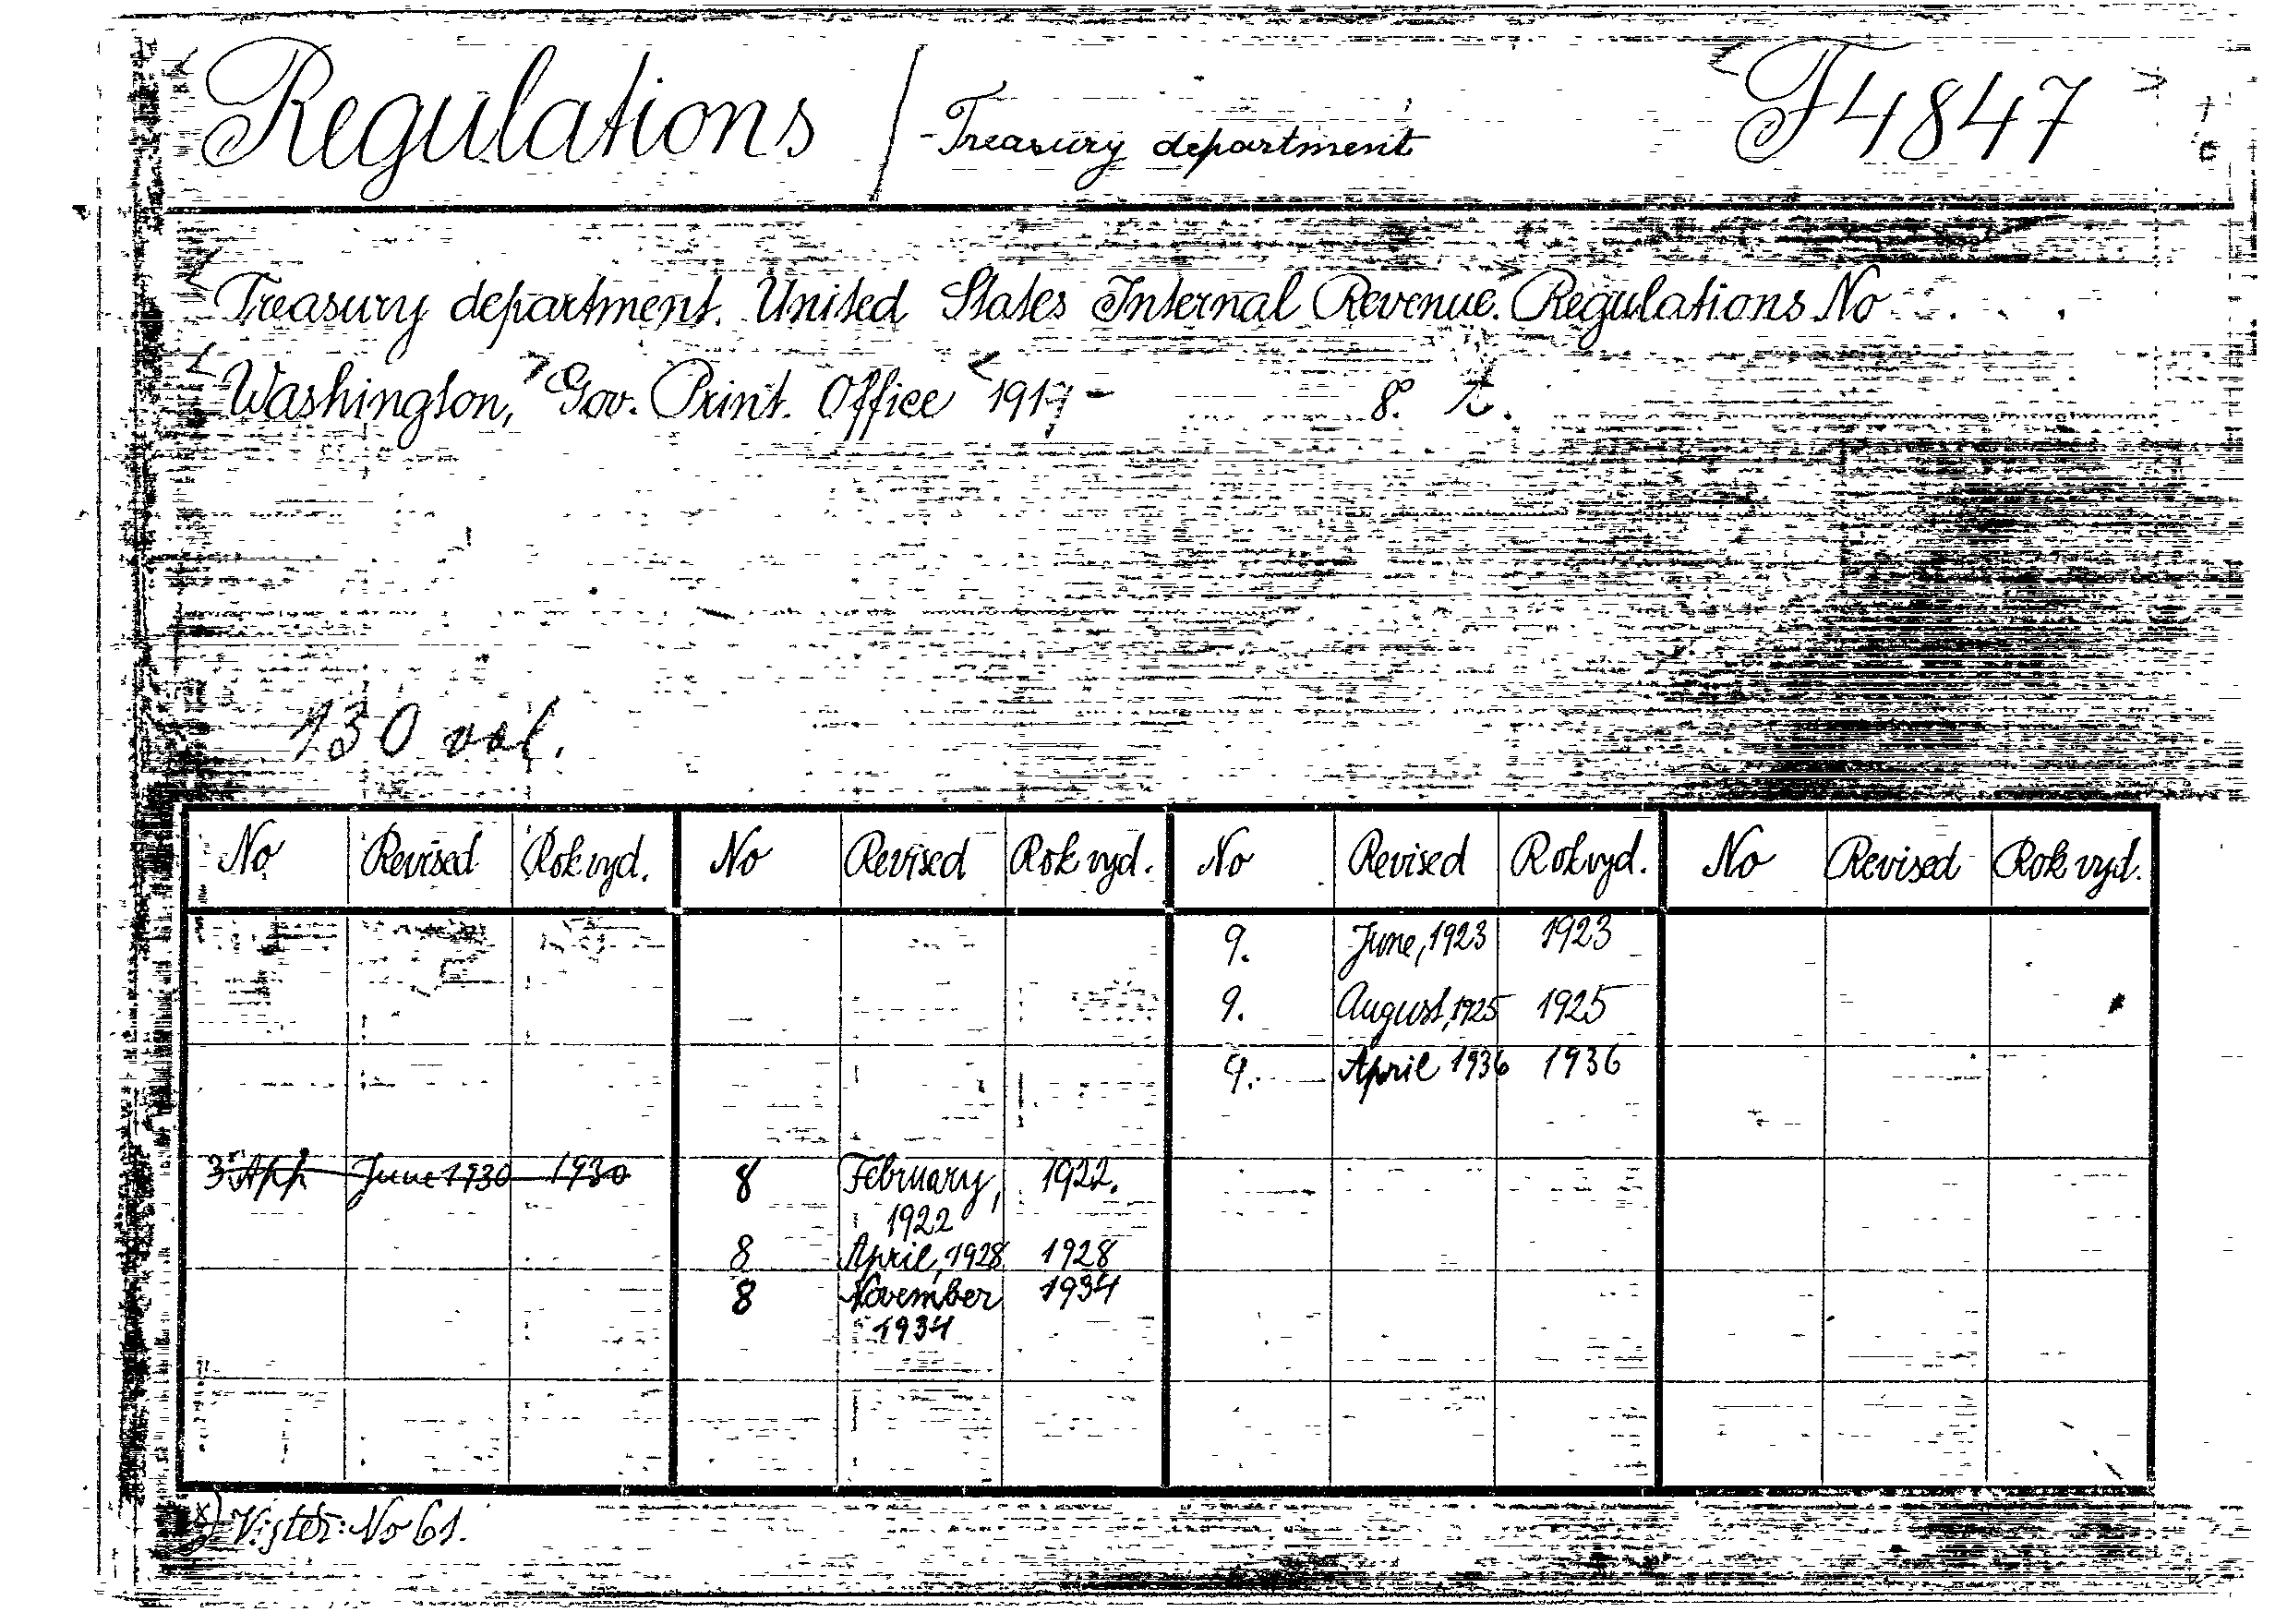 Regulations / -Treasury department F4847
Treasury department. United States Internal Revenue. Regulations No . . . .
Washington, Gov. Print. Office 1917- 8°.
130 vol.
No Revised Rok vyd. No Revised Rok vyd. No Revised Rok vyd. No Revised Rok vyd.
9. June, 1923 1923
9. August, 1925 1925
9. April 1936 1936
3 App June 1930 1930 8 February, 1922.
1922
8 April, 1928 1928
8 November 1934
1934
x) No 61.